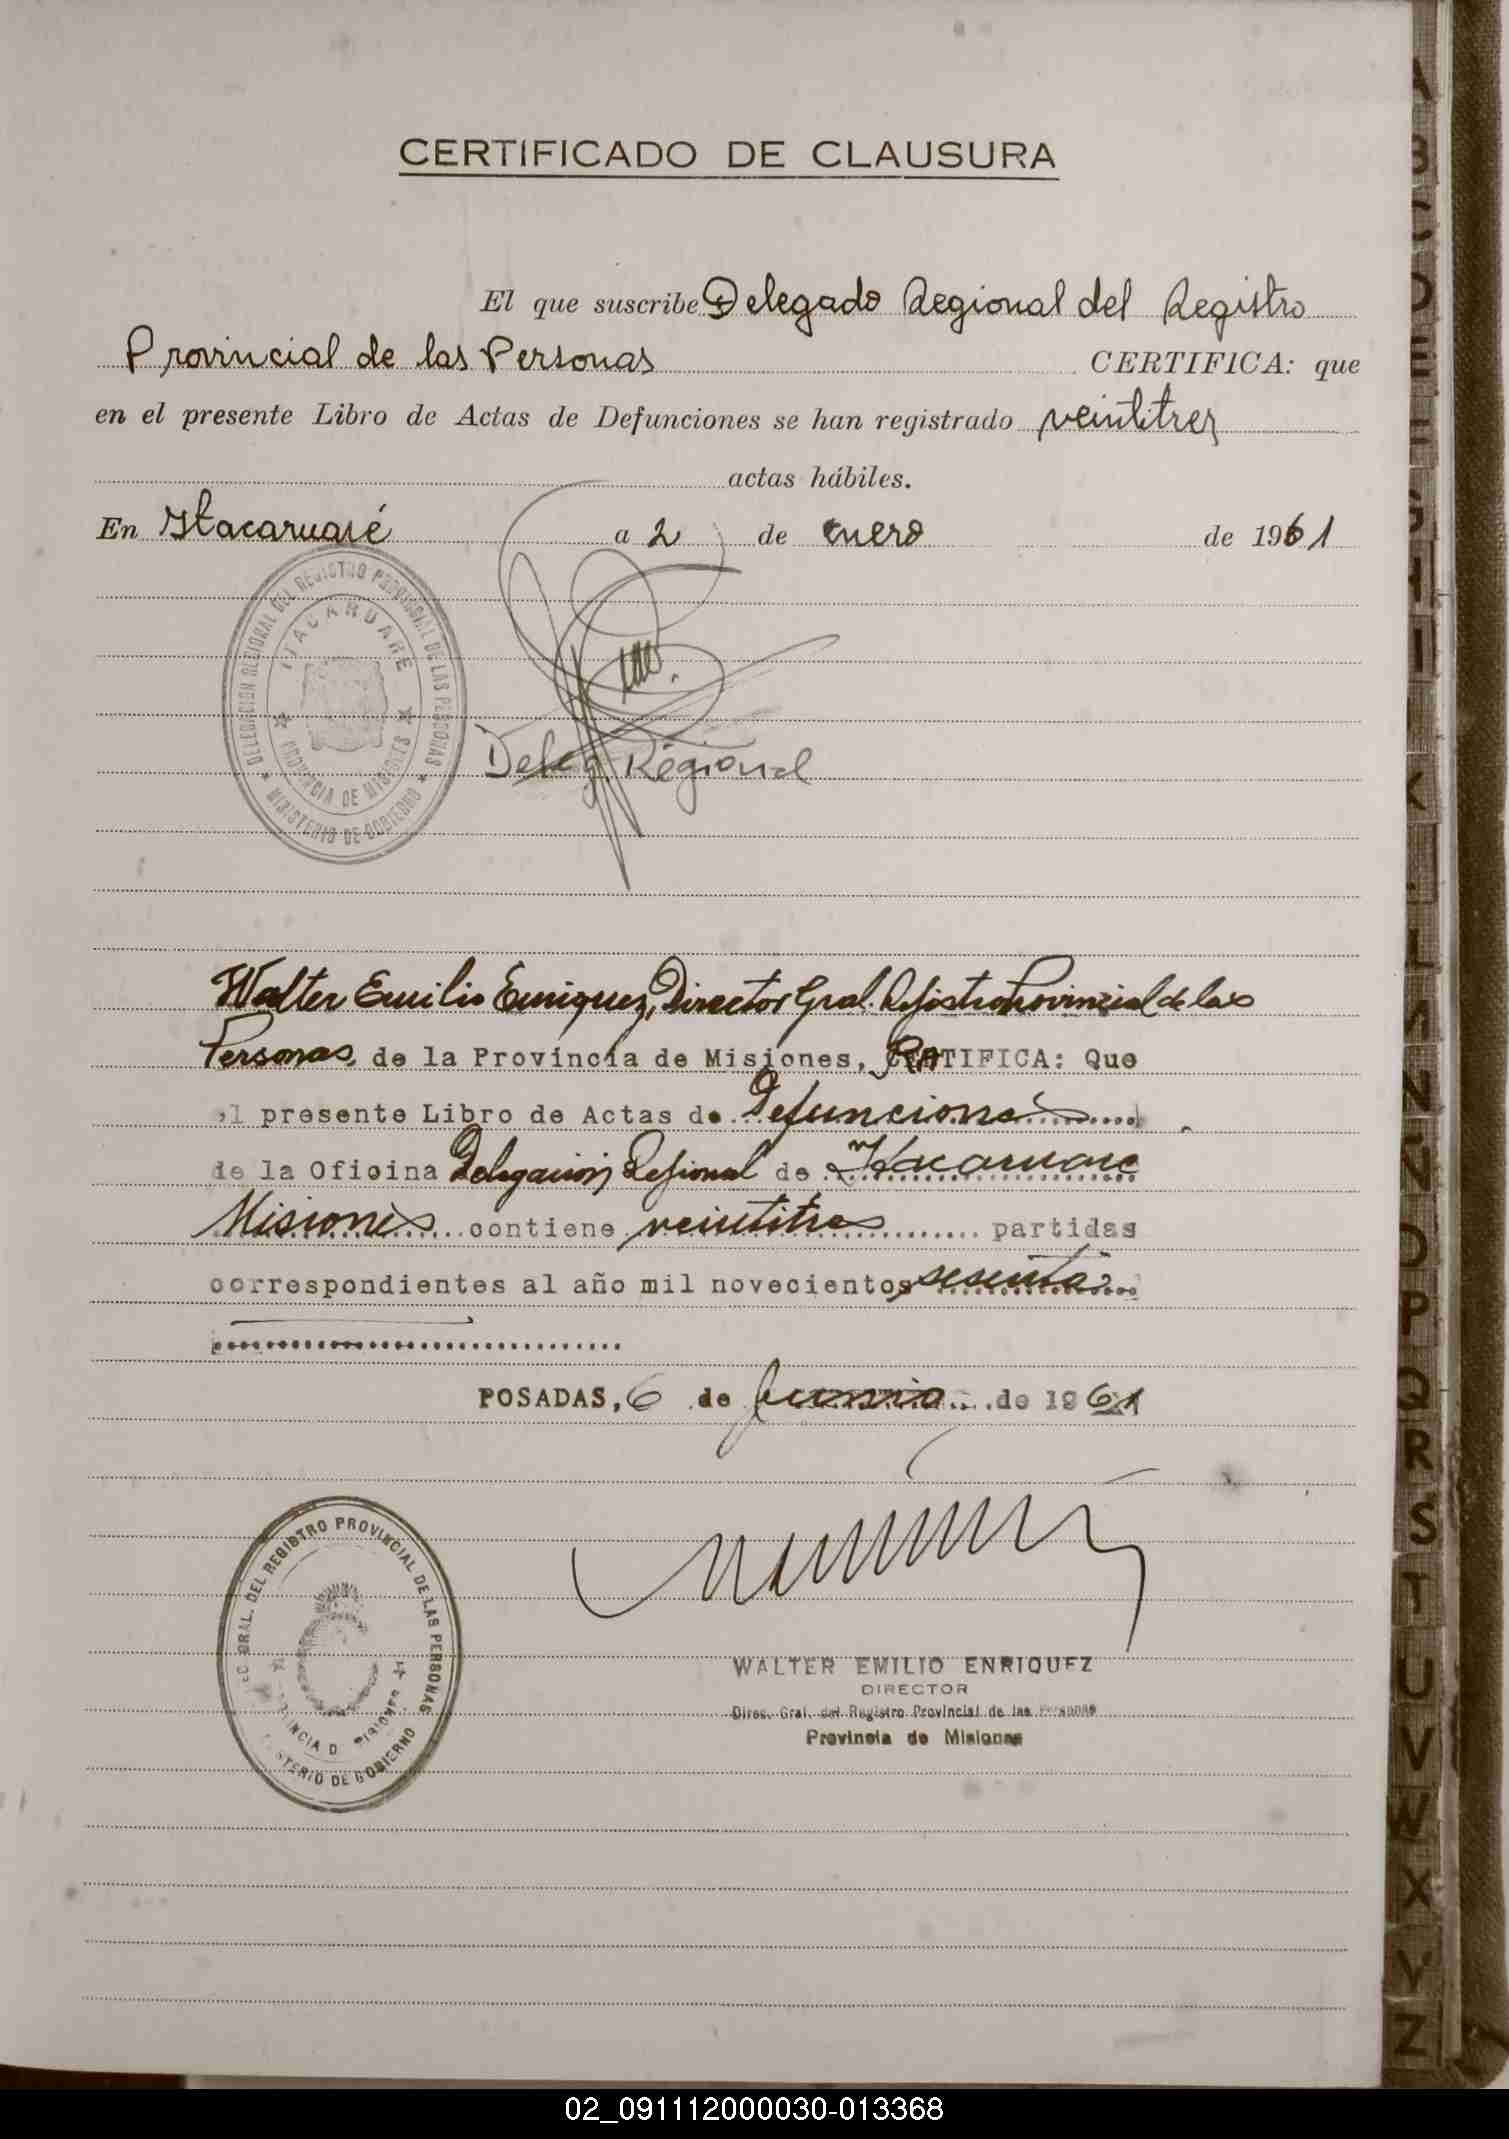 CERTIFICADO DE CLAUSURA
El que suscribe Delegado Regional del Registro
Provincial de las Personas CERTIFICA: que
en el presente Libro de Actas de Defunciones se han registrado veintitres
actas hábiles.
En Itacaruaré a 2 de enero de 1961
DELEGACION REGIONAL DEL REGISTRO PROVINCIAL DE LAS PERSONAS
ITACARUARE
PROVINCIA DE MISIONES
MINISTERIO DE GOBIERNO
Deleg. Regional
Walter Emilio Enriquez, Director Gral. Registro Provincial de las
Personas de la Provincia de Misiones, RATIFICA: Que
el presente Libro de Actas de Defunciones
de la Oficina Delegación Regional de Itacaruare
Misiones contiene veintitres partidas
correspondientes al año mil novecientos sesenta
POSADAS, 6 de Junio de 1961
GRAL. DEL REGISTRO PROVINCIAL DE LAS PERSONAS
WALTER EMILIO ENRIQUEZ
DIRECTOR
Direc. Gral. del Registro Provincial de las Personas
Provincia de Misiones
A
B
C
D
E
K
L
M
N
Ñ
O
P
Q
R
S
T
U
V
W
X
Y
Z
02_091112000030-013368